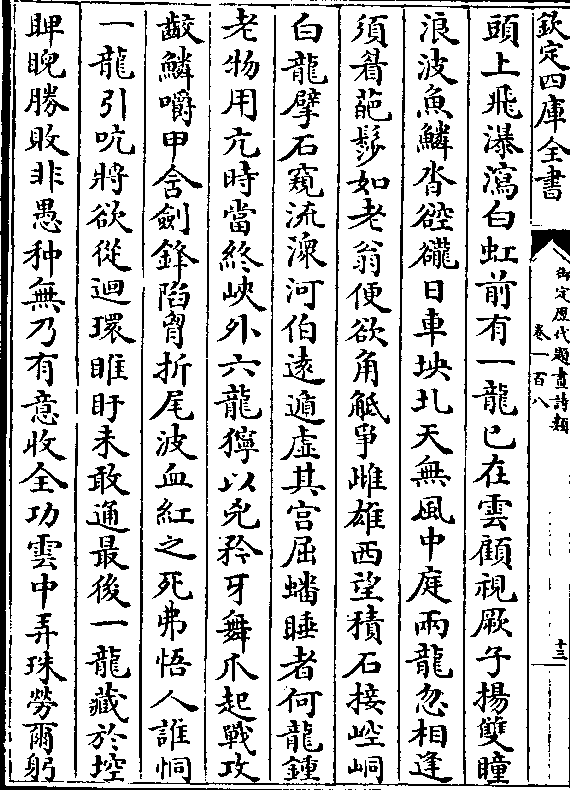 欽定四庫全書
御定歷代題畫詩類
卷一百八
十三
頭上飛瀑瀉白虹前有一龍已在雲顧視厥子揚雙瞳
浪波魚鱗沓硿礲日車坱圠天無風中庭兩龍忽相逢
須䰄葩髿如老翁便欲角觝爭雌雄西望積石接崆峒
白龍擘石窺流潨河伯遠遁虛其宮屈蟠睡者何龍鍾
老物用亢時當終峽外六龍獰以兇矜牙舞爪起戰攻
齩鱗嚼甲含劍鋒陷胷折尾波血紅之死弗悟人誰恫
一龍引吭將欲從迴環睢盱未敢通最後一龍藏於埪
睥睨勝敗非愚种無乃有意收全功雲中弄珠勞爾躬